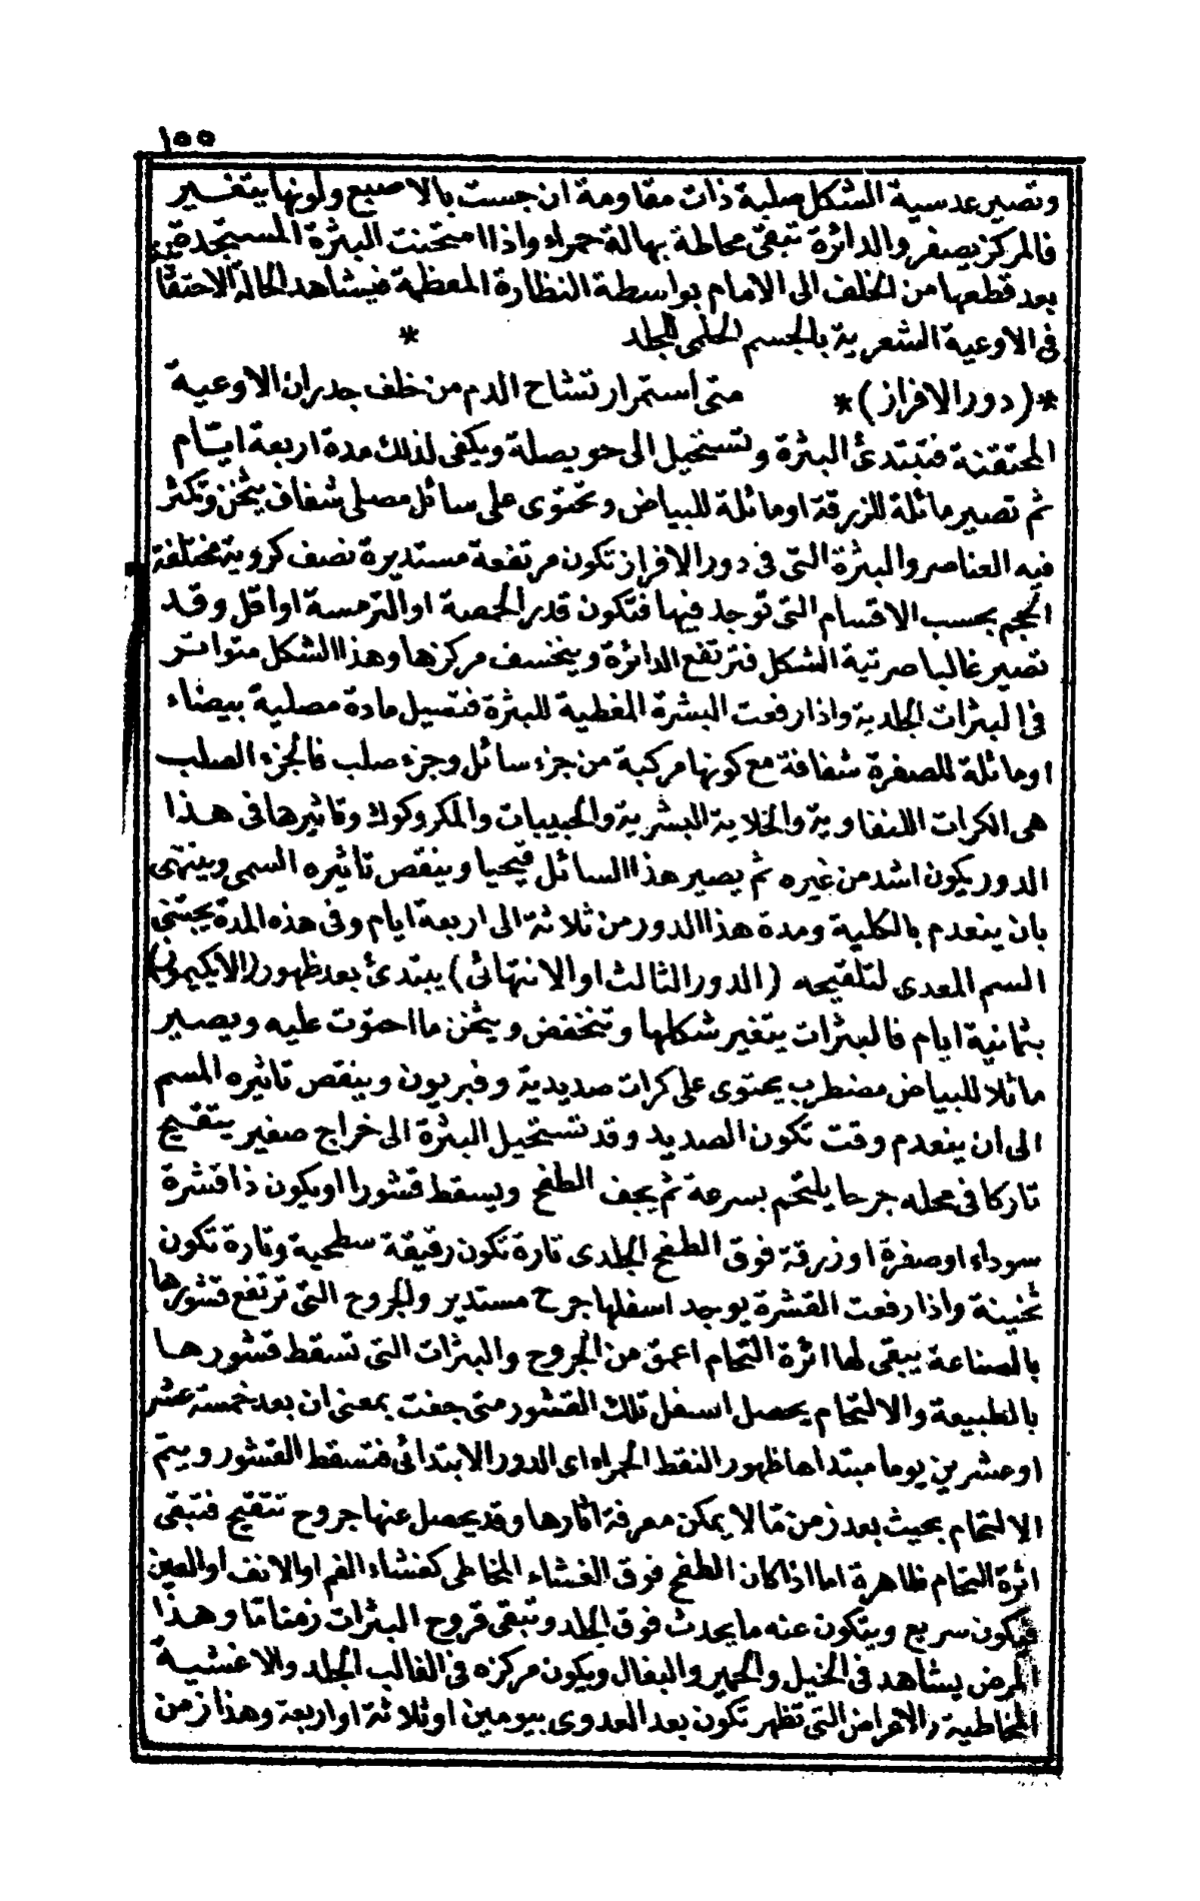 ١٥٥
وتصير عدسية الشكل صلبة ذات مقاومة ان جست بالاصبع ولونها يتغير
فالمركز يصفر والدائرة تبقى محاطة بهالة حمراء واذا امتحنت البثرة المستجدة
بعد قطعها من الخلف الى الامام بواسطة النظارة المعظمة فيشاهد الحالة الاحتقانية
فى الاوعية الشعرية بالجسم الحلمى للجلد *
*(دور الافراز)* متى استمرار تشاح الدم من خلف جدران الاوعية
المحتقنة فتبتدئ البثرة وتستحيل الى حويصلة ويكفى لذلك مدة اربعة ايام
ثم تصير مائلة للزرقة او مائلة للبياض وتحتوى على سائل مصلى شفاف يثخن وتكثر
فيه العناصر والبثرة التى فى دور الافراز تكون مرتفعة مستديرة نصف كروية مختلفة
الحجم بحسب الاقسام التى توجد فيها فتكون قدر الحمصة او الترمسة او اقل وقد
تصير غالبا صرتية الشكل فترتفع الدائرة وينخسف مركزها وهذا الشكل متواتر
فى البثرات الجلدية واذا رفعت البشرة المغطية للبثرة فتسيل مادة مصلية بيضاء
او مائلة للصفرة شفافة مع كونها مركبة من جزء سائل وجزء صلب فالجزء الصلب
هى الكرات اللنفاوية والخلاية البشرية والحبيبات والمكروكوك وتاثيرها فى هذا
الدور يكون اشد من غيره ثم يصير هذا السائل قيحيا وينقص تاثيره السمى وينتهى
بان ينعدم بالكلية ومدة هذا الدور من ثلاثة الى اربعة ايام وفى هذه المدة يجتنى
السم المعدى لتلقيحه (الدور الثالث او الانتهائى) يبتدئ بعد ظهور (الايكيمون)
بثمانية ايام فالبثرات يتغير شكلها وتنخفض ويثخن ما احتوت عليه ويصير
مائلا للبياض مضطرب يحتوى على كرات صديدية وفبريون وينقص تاثيره المسم
الى ان ينعدم وقت تكون الصديد وقد تستحيل البثرة الى خراج صغير يتقيح
تاركا فى محله جرحا يلتحم بسرعة ثم يجف الطفح ويسقط قشورا او يكون ذا قشرة
سوداء او صفرة او زرقة فوق الطفح الجلدى تارة تكون رقيقة سطحية وتارة تكون
ثخينة واذا رفعت القشرة يوجد اسفلها جرح مستدير والجروح التى ترتفع قشورها
بالصناعة يبقى لها اثرة التحام اعمق من الجروح والبثرات التى تسقط قشورها
بالطبيعة والالتحام يحصل اسفل تلك القشور متى جفت بمعنى ان بعد خمسة عشر
او عشرين يوما مبتداها ظهور النقط الحمراء اى الدور الابتدائى فتسقط القشور ويتم
الالتحام بحيث بعد زمن مّا لا يمكن معرفة اثارها وقد يحصل عنها جروح تتقيح فتبقى
اثرة التحام ظاهرة اما اذا كان الطفح فوق الغشاء المخاطى كغشاء الفم او الانف او العين
فيكون سريع ويتكون عنه ما يحدث فوق الجلد وتبقى قروح البثرات زمنا ما وهذا
المرض يشاهد فى الخيل والحمير والبغال ويكون مركزه فى الغالب الجلد والاغشية
المخاطية والاعراض التى تظهر تكون بعد العدوى بيومين او ثلاثة او اربعة وهذا زمن